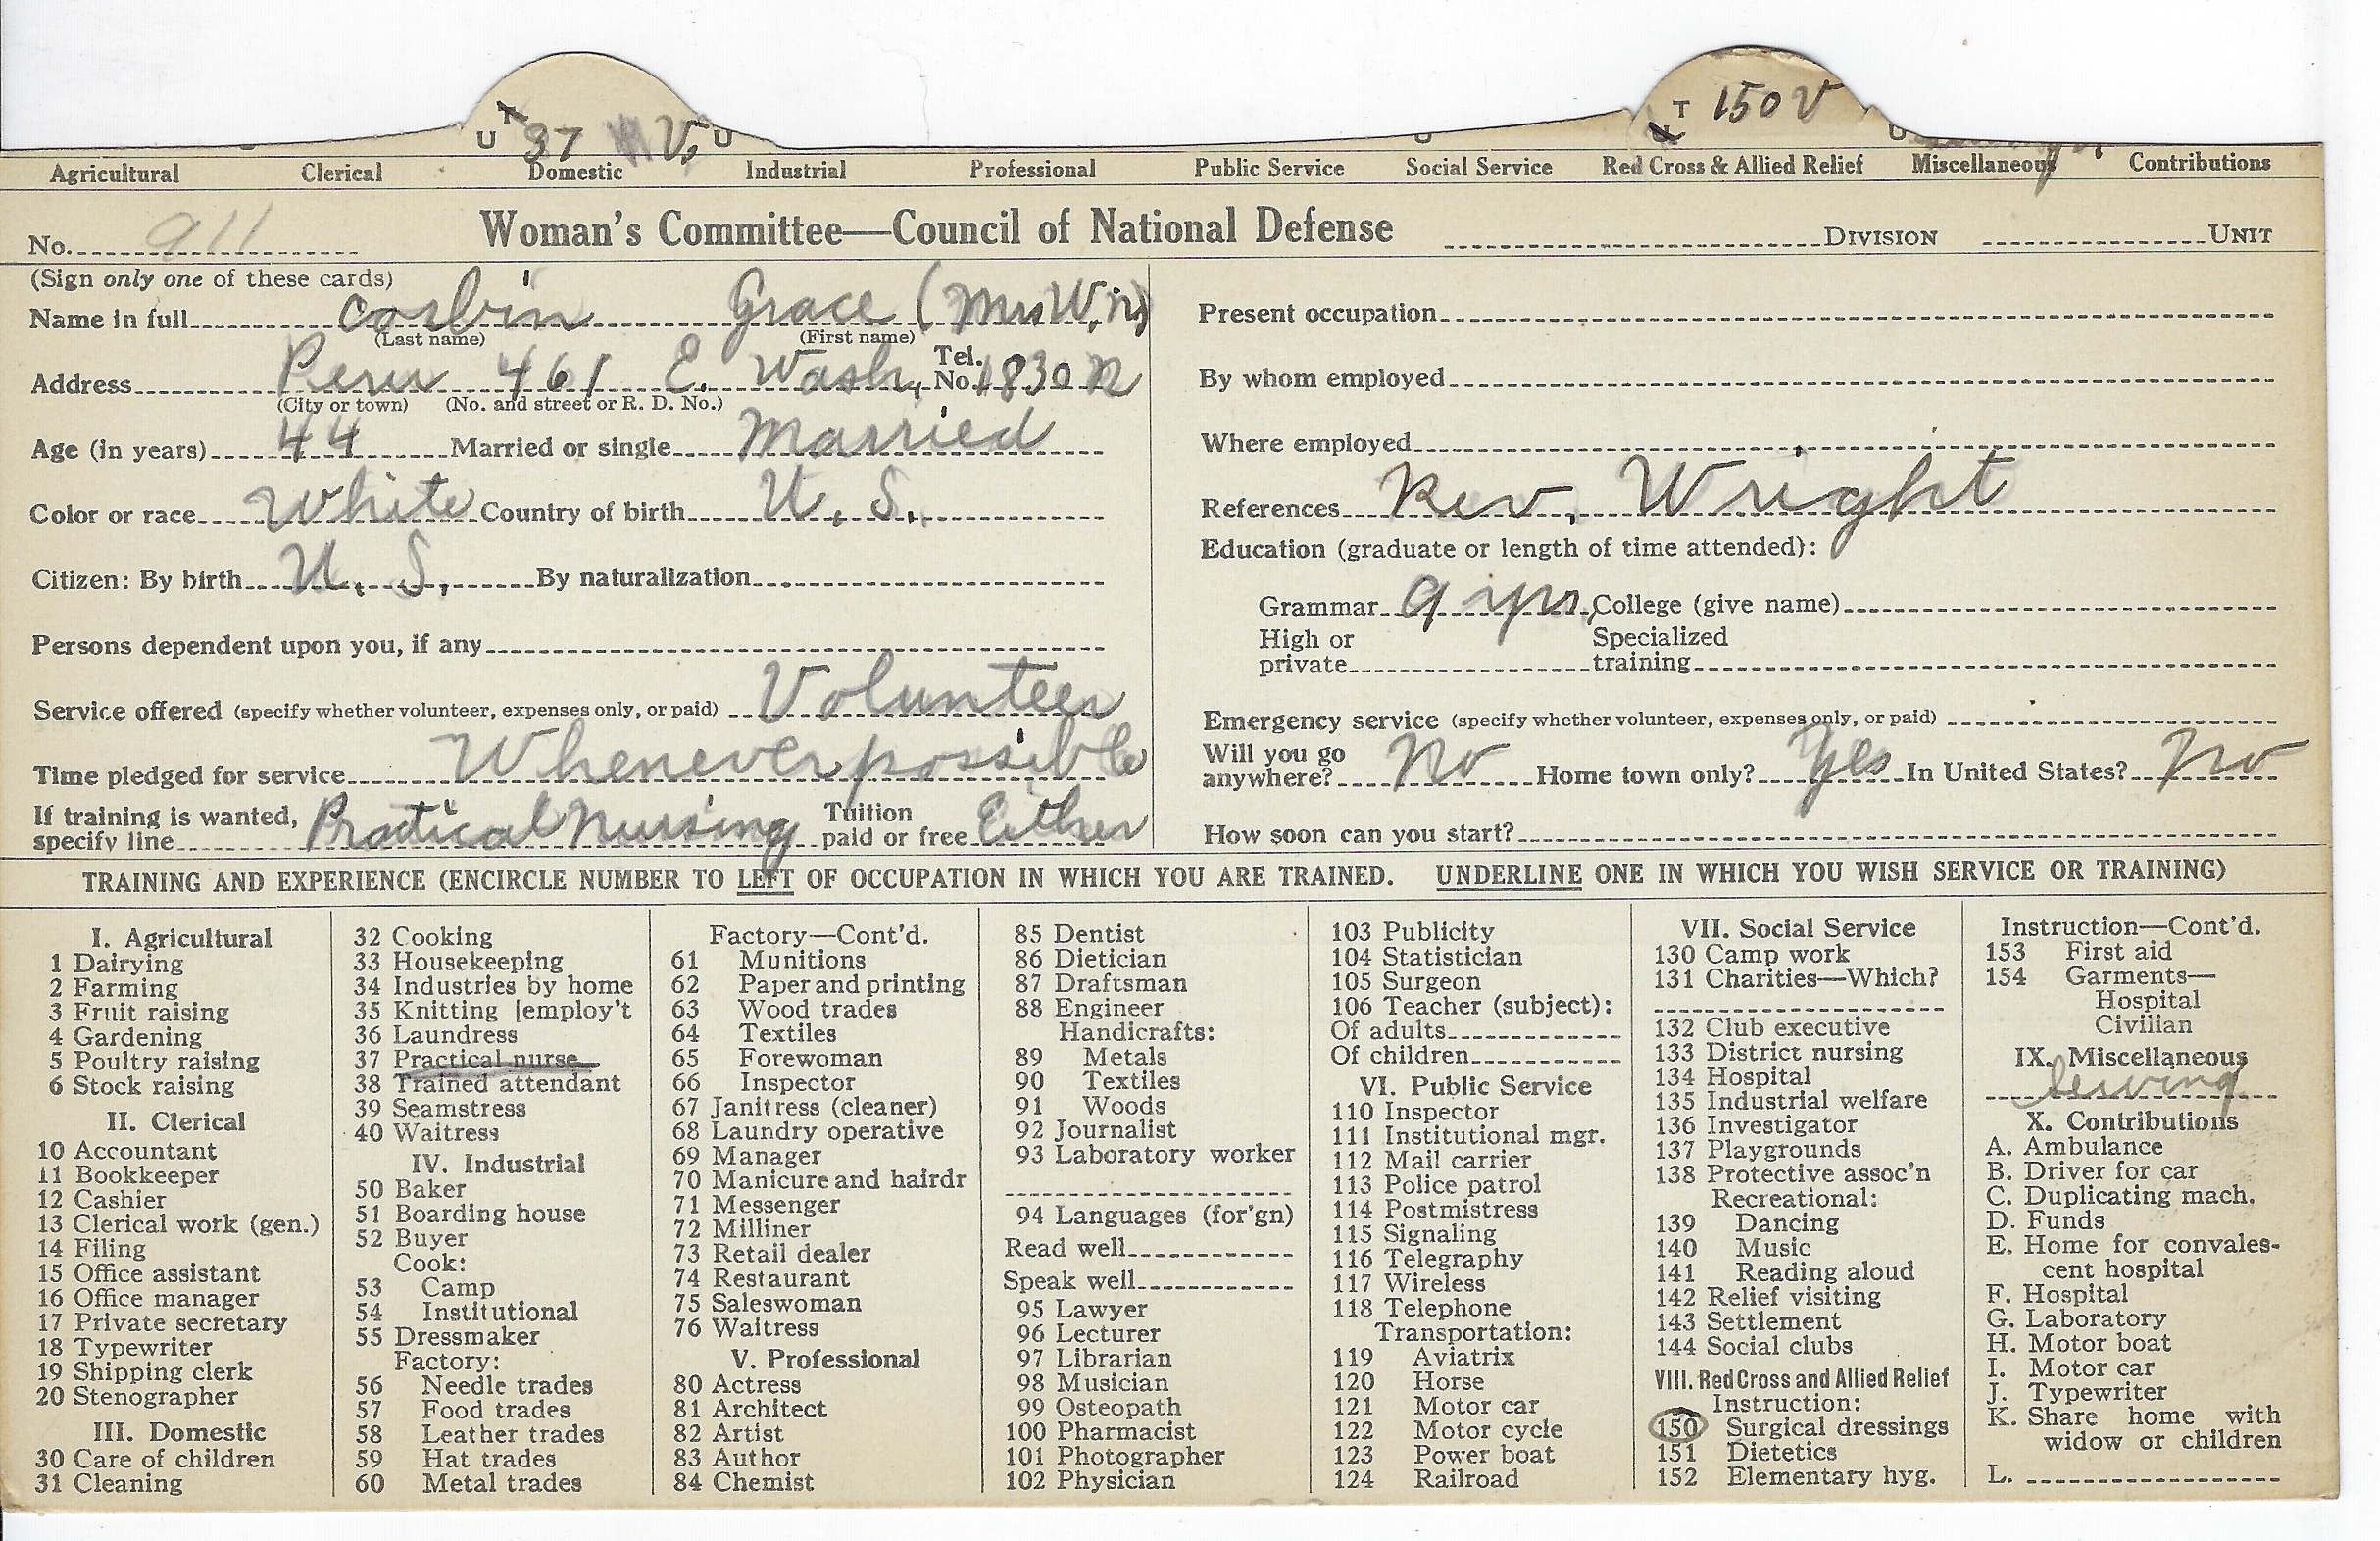 U T 37 V. U T U 150 V U
Agricultural Clerical Domestic Industrial Professional Public Service Social Service Red Cross & Allied Relief Miscellaneous Contributions
No. 911 Woman's Committee—Council of National Defense DIVISION UNIT
(Sign only one of these cards)
Name in full Corbin Grace (Mrs W. N)
(Last name) (First name)
Address Peru 461 E. Wash. Tel. No. 1830 R
(City or town) (No. and street or R. D. No.)
Age (in years) 44 Married or single Married
Color or race White Country of birth U. S.
Citizen: By birth U. S. By naturalization
Persons dependent upon you, if any
Service offered (specify whether volunteer, expenses only, or paid) Volunteer
Time pledged for service Whenever possible
If training is wanted, specify line Practical Nursing Tuition paid or free Either
Present occupation
By whom employed
Where employed
References Rev. Wright
Education (graduate or length of time attended):
Grammar 9 yrs. College (give name)
High or private Specialized training
Emergency service (specify whether volunteer, expenses only, or paid)
Will you go anywhere? No Home town only? Yes In United States? No
How soon can you start?
TRAINING AND EXPERIENCE (ENCIRCLE NUMBER TO LEFT OF OCCUPATION IN WHICH YOU ARE TRAINED. UNDERLINE ONE IN WHICH YOU WISH SERVICE OR TRAINING)
I. Agricultural
1 Dairying
2 Farming
3 Fruit raising
4 Gardening
5 Poultry raising
6 Stock raising
II. Clerical
10 Accountant
11 Bookkeeper
12 Cashier
13 Clerical work (gen.)
14 Filing
15 Office assistant
16 Office manager
17 Private secretary
18 Typewriter
19 Shipping clerk
20 Stenographer
III. Domestic
30 Care of children
31 Cleaning
32 Cooking
33 Housekeeping
34 Industries by home
35 Knitting [employ't
36 Laundress
37 Practical nurse
38 Trained attendant
39 Seamstress
40 Waitress
IV. Industrial
50 Baker
51 Boarding house
52 Buyer
Cook:
53 Camp
54 Institutional
55 Dressmaker
Factory:
56 Needle trades
57 Food trades
58 Leather trades
59 Hat trades
60 Metal trades
Factory—Cont'd.
61 Munitions
62 Paper and printing
63 Wood trades
64 Textiles
65 Forewoman
66 Inspector
67 Janitress (cleaner)
68 Laundry operative
69 Manager
70 Manicure and hairdr
71 Messenger
72 Milliner
73 Retail dealer
74 Restaurant
75 Saleswoman
76 Waitress
V. Professional
80 Actress
81 Architect
82 Artist
83 Author
84 Chemist
85 Dentist
86 Dietician
87 Draftsman
88 Engineer
Handicrafts:
89 Metals
90 Textiles
91 Woods
92 Journalist
93 Laboratory worker
94 Languages (for'gn)
Read well
Speak well
95 Lawyer
96 Lecturer
97 Librarian
98 Musician
99 Osteopath
100 Pharmacist
101 Photographer
102 Physician
103 Publicity
104 Statistician
105 Surgeon
106 Teacher (subject):
Of adults
Of children
VI. Public Service
110 Inspector
111 Institutional mgr.
112 Mail carrier
113 Police patrol
114 Postmistress
115 Signaling
116 Telegraphy
117 Wireless
118 Telephone
Transportation:
119 Aviatrix
120 Horse
121 Motor car
122 Motor cycle
123 Power boat
124 Railroad
VII. Social Service
130 Camp work
131 Charities—Which?
132 Club executive
133 District nursing
134 Hospital
135 Industrial welfare
136 Investigator
137 Playgrounds
138 Protective assoc'n
Recreational:
139 Dancing
140 Music
141 Reading aloud
142 Relief visiting
143 Settlement
144 Social clubs
VIII. Red Cross and Allied Relief
Instruction:
150 Surgical dressings
151 Dietetics
152 Elementary hyg.
Instruction—Cont'd.
153 First aid
154 Garments—
Hospital
Civilian
IX. Miscellaneous
Sewing
X. Contributions
A. Ambulance
B. Driver for car
C. Duplicating mach.
D. Funds
E. Home for convales-
cent hospital
F. Hospital
G. Laboratory
H. Motor boat
I. Motor car
J. Typewriter
K. Share home with
widow or children
L.